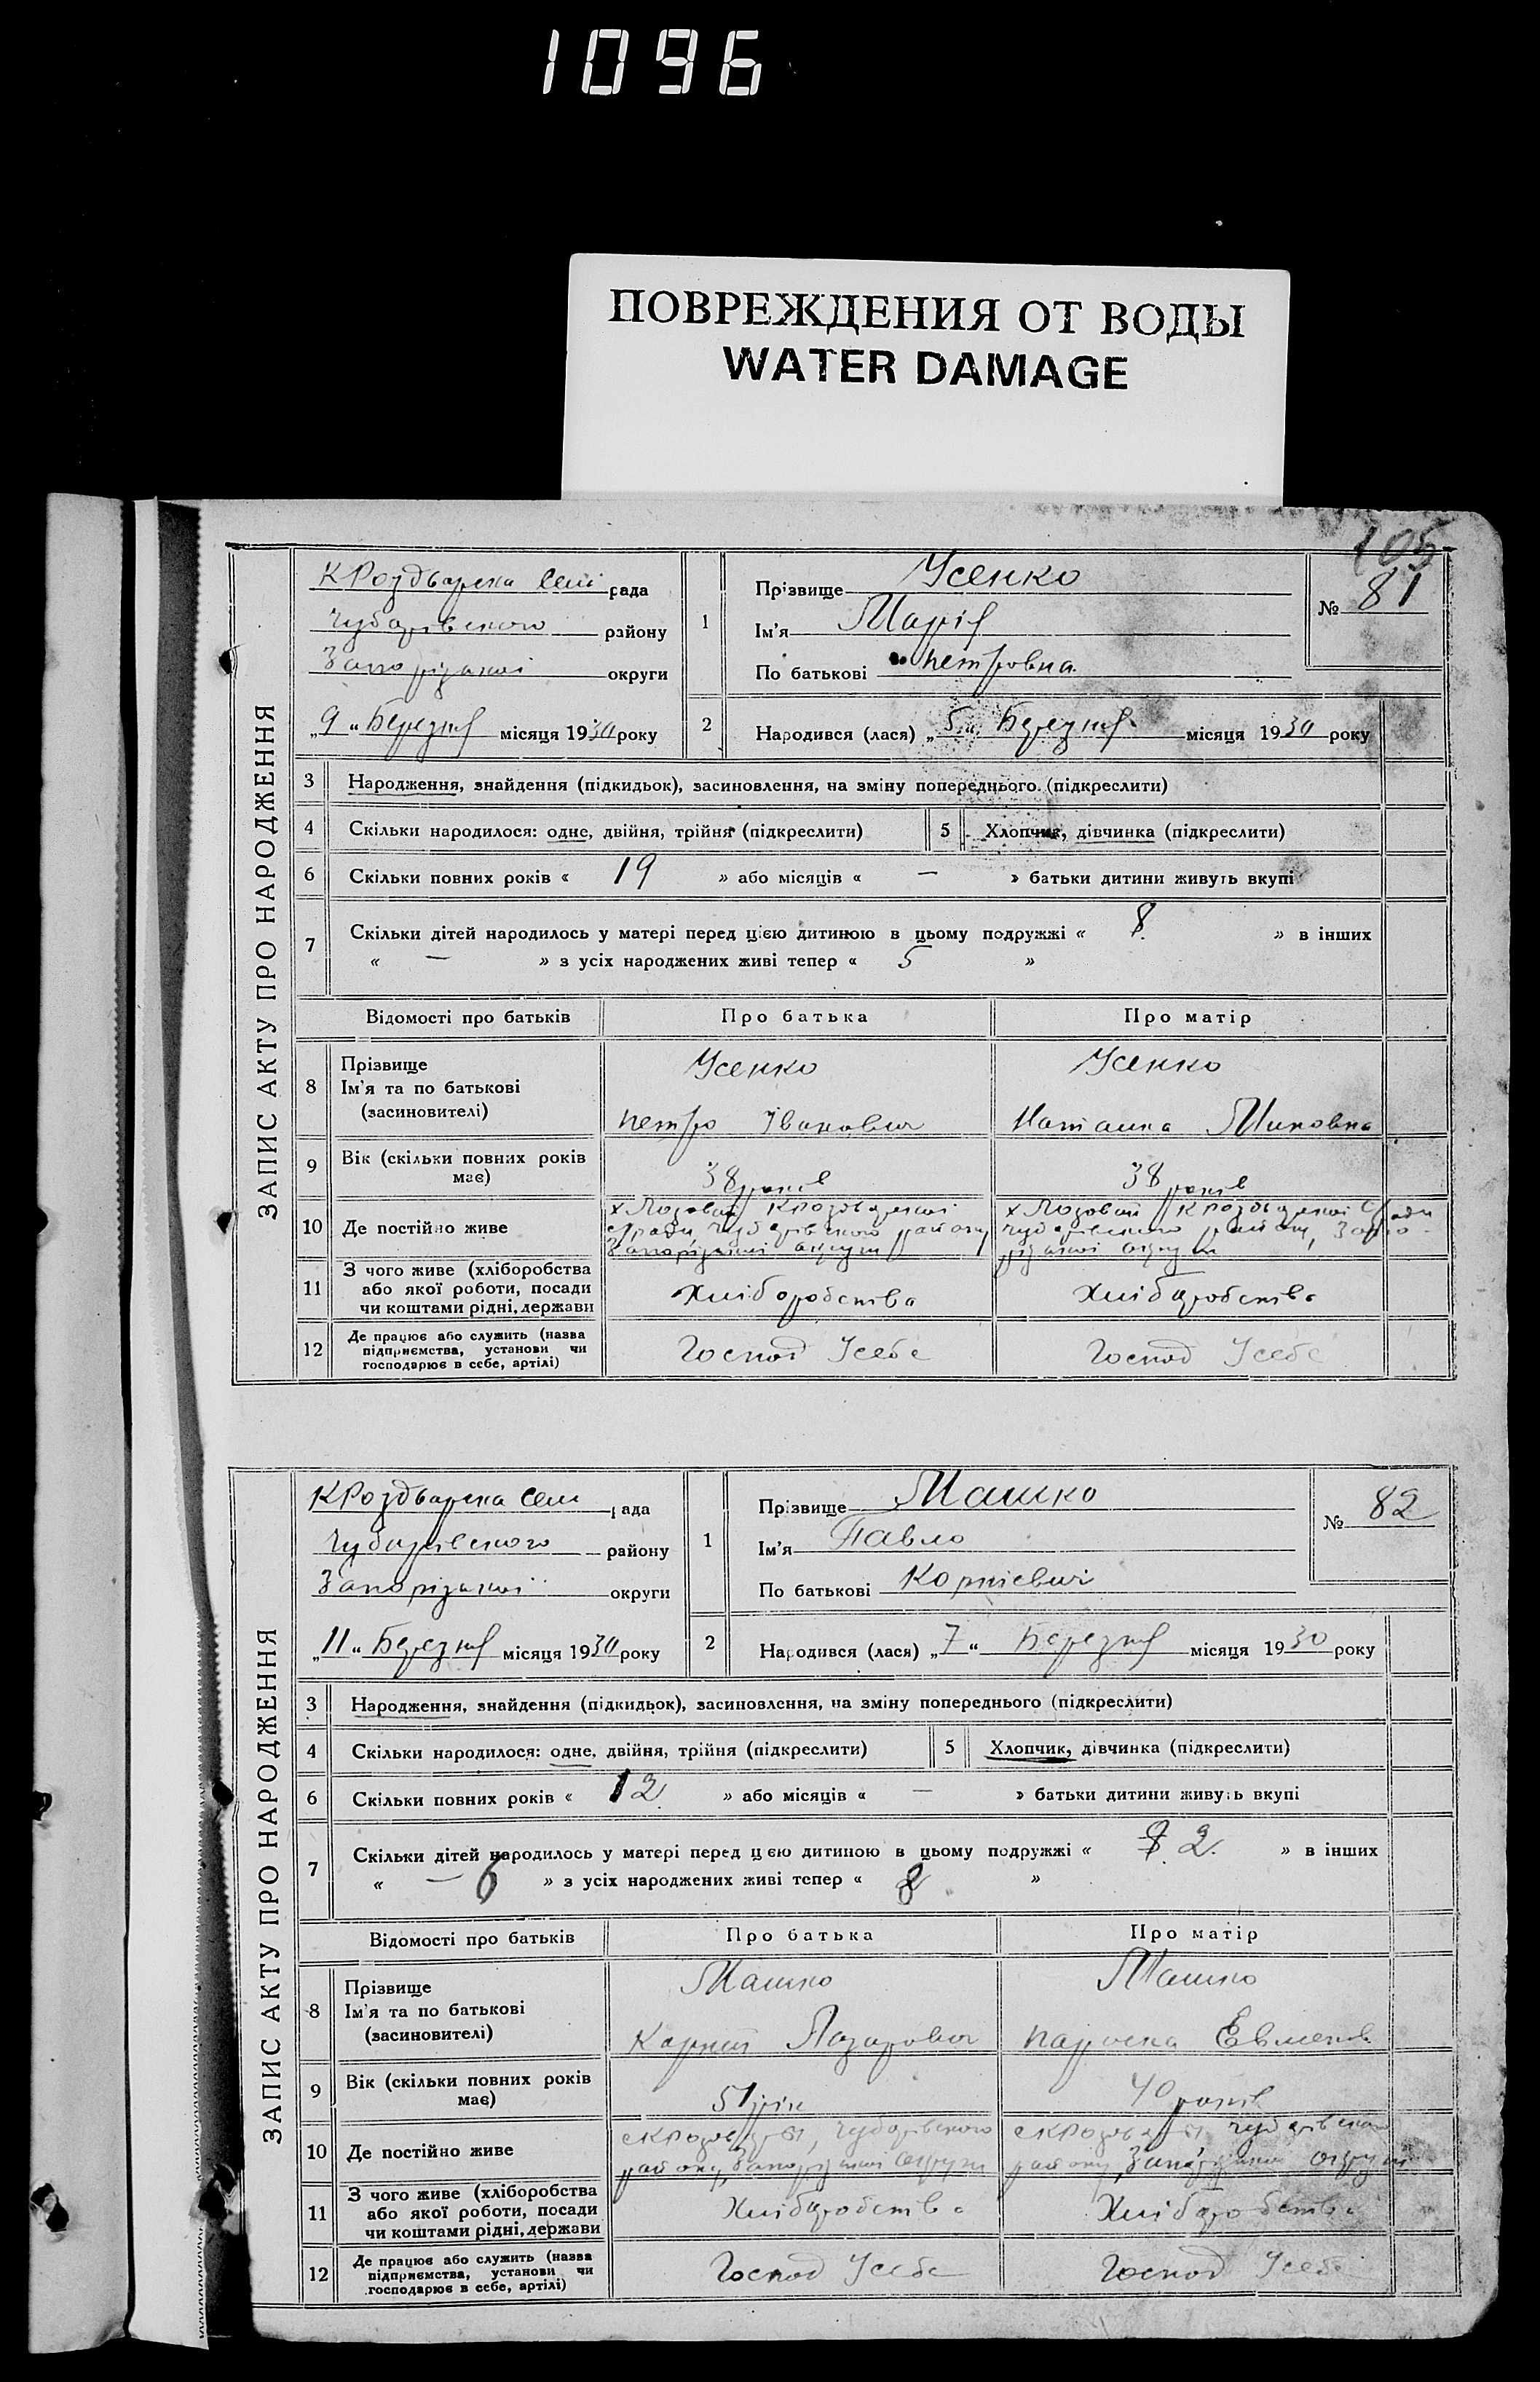 1096
ПОВРЕЖДЕНИЯ ОТ ВОДЫ
WATER DAMAGE
105
ЗАПИС АКТУ ПРО НАРОДЖЕННЯ
КРоздварска Сель рада
Чубарівського району
Запорізької округи
„9“ Березня місяця 1930 року
1
Прізвище Усенко
Ім'я Марія
По батькові Петровна
№ 81
2 Народився (лася) „5“ Березня місяця 1930 року
3 Народження, знайдення (підкидьок), засиновлення, на зміну попереднього (підкреслити)
4 Скільки народилося: одне, двійня, трійня (підкреслити) 5 Хлопчик, дівчинка (підкреслити)
6 Скільки повних років « 19 » або місяців « — » батьки дитини живуть вкупі
7 Скільки дітей народилось у матері перед цією дитиною в цьому подружжі « 8 » в інших
« — » з усіх народжених живі тепер « 5 »
Відомості про батьків Про батька Про матір
8 Прізвище
Ім'я та по батькові
(засиновителі)
Усенко Усенко
Петро Іванович Миновна
9 Вік (скільки повних років
має)
38 років 38 років
10 Де постійно живе
х Лозовий
Чубарівского району
Запорізької округи
х Лозовий
Чубарівского району, Запо-
різької округи
11 З чого живе (хліборобства
або якої роботи, посади
чи коштами рідні, держави
Хліборобства Хліборобства
12 Де працює або служить (назва
підприємства, установи чи
господарює в себе, артілі)
Господ Усебе Господ Усебе
ЗАПИС АКТУ ПРО НАРОДЖЕННЯ
КРоздварска Сель рада
Чубарівского району
Запорізької округи
„11“ Березня місяця 1930 року
1
Прізвище Машко
Ім'я Павло
По батькові Корнієвич
№ 82
2 Народився (лася) „7“ Березня місяця 1930 року
3 Народження, знайдення (підкидьок), засиновлення, на зміну попереднього (підкреслити)
4 Скільки народилося: одне, двійня, трійня (підкреслити) 5 Хлопчик, дівчинка (підкреслити)
6 Скільки повних років « 12 » або місяців « — » батьки дитини живуть вкупі
7 Скільки дітей народилось у матері перед цією дитиною в цьому подружжі « 8 2 » в інших
« — 6 » з усіх народжених живі тепер « 8 »
Відомості про батьків Про батька Про матір
8 Прізвище
Ім'я та по батькові
(засиновителі)
Машко Машко
Корній Лазарович
9 Вік (скільки повних років
має)
51 рік 40 років
10 Де постійно живе
Чубарівского
району, Запорізької округи
Чубарівского
району, Запорізької округи
11 З чого живе (хліборобства
або якої роботи, посади
чи коштами рідні, держави
Хліборобства Хліборобства
12 Де працює або служить (назва
підприємства, установи чи
господарює в себе, артілі)
Господ Усебе Господ Усебе